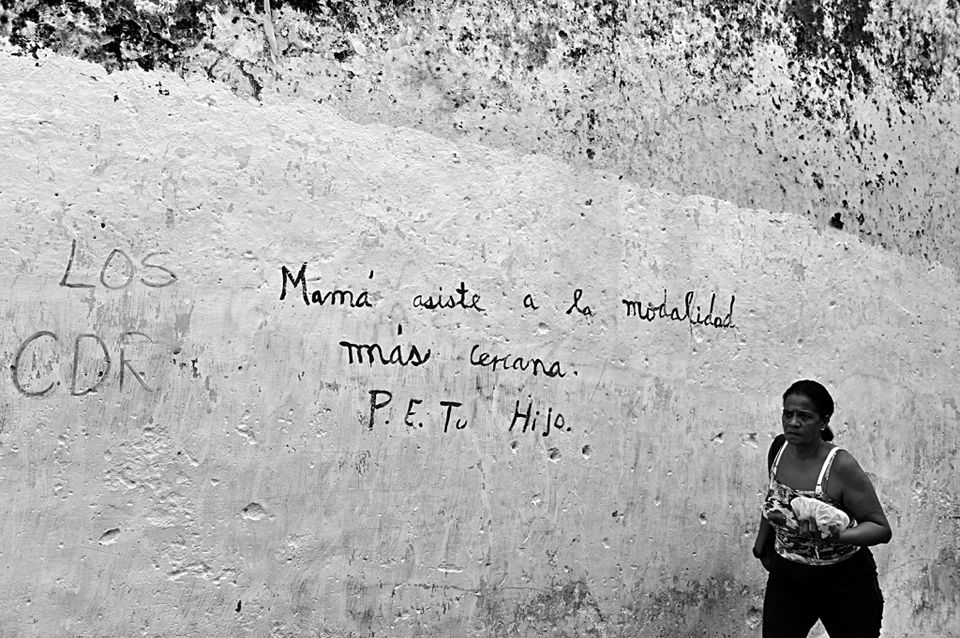 LOS
CDR
Mamá asiste a la modalidad
más cercana.
P.E. Tu Hijo.